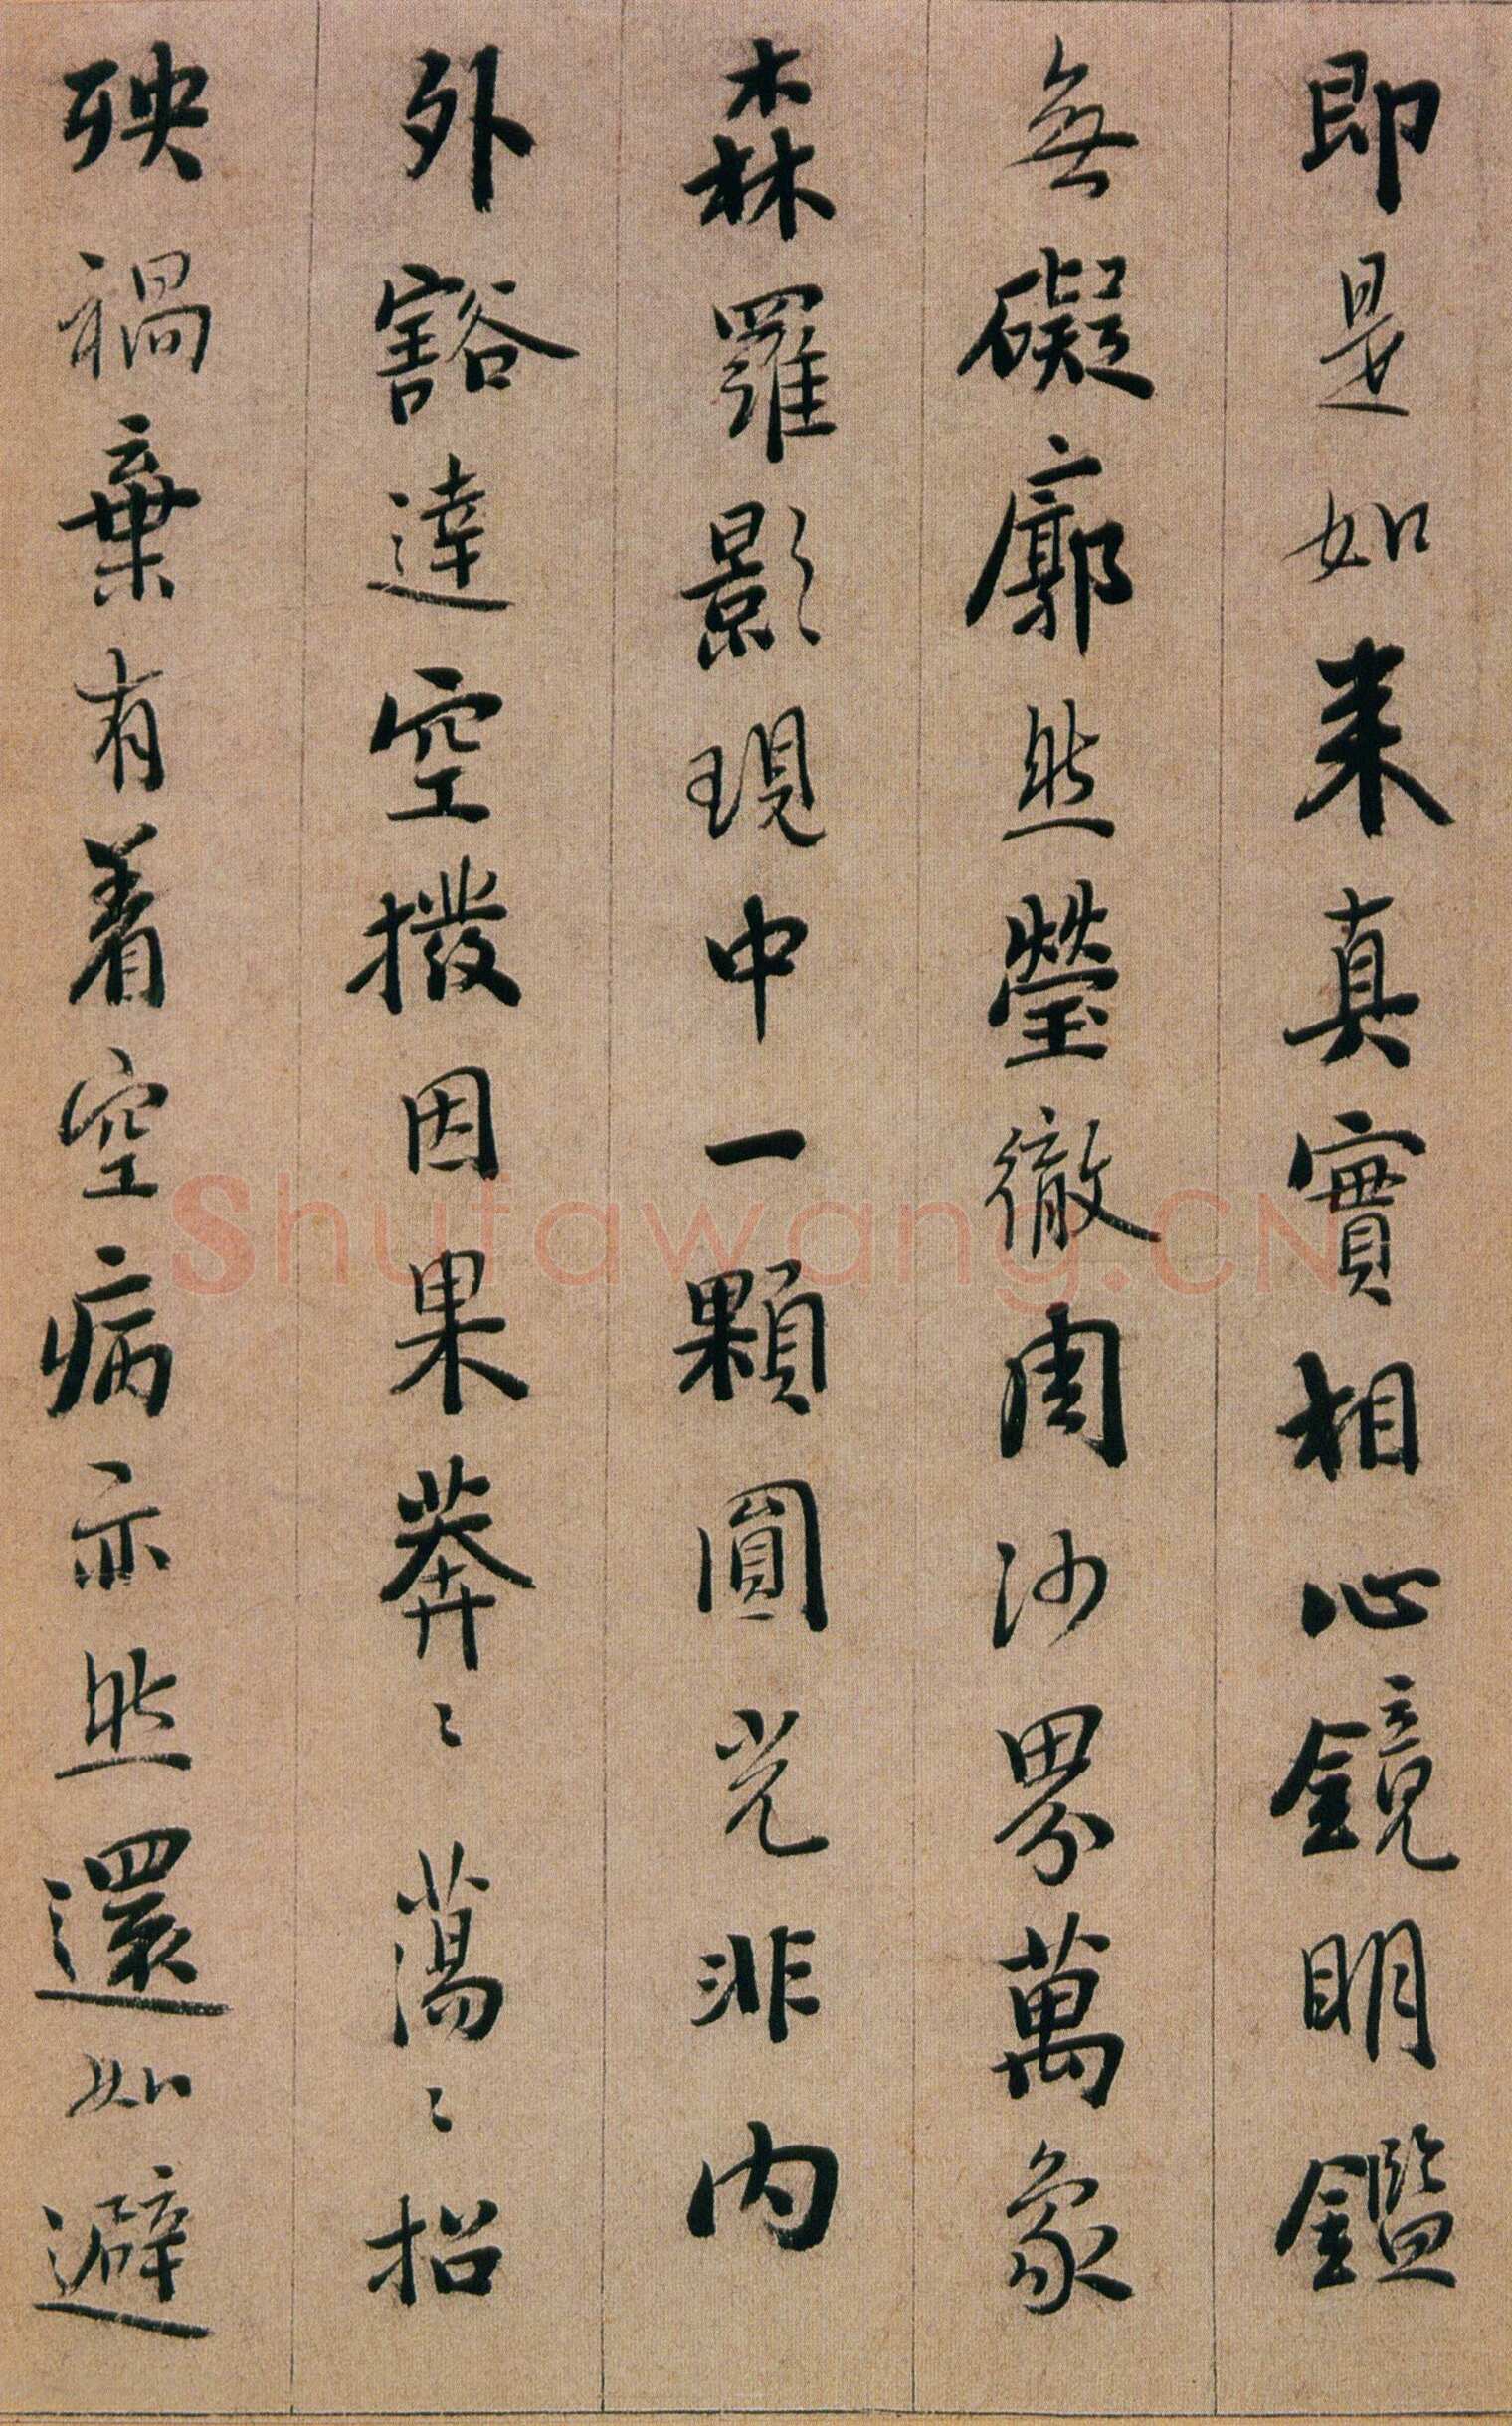 即是如来真實相心鏡明鑑
無礙廓然瑩徹周沙界萬象
森羅影現中一顆圓光非内
外豁達空撥因果莽〻蕩〻招
殃禍棄有着空病亦然還如避
Shufawang.CN